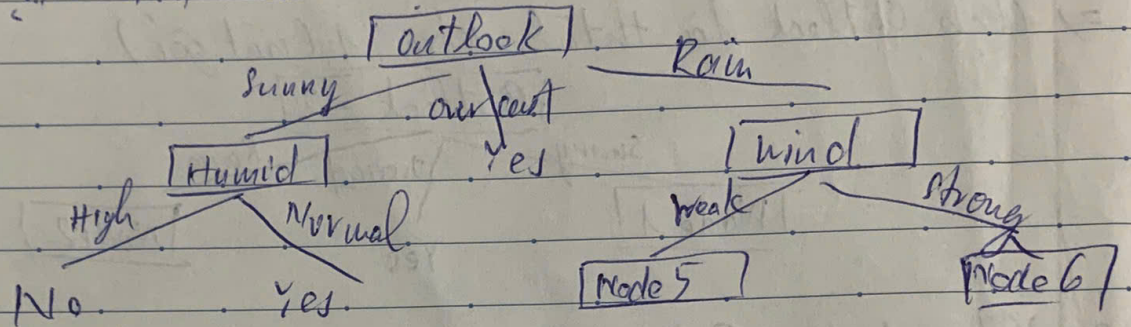 Outlook
Sunny
overcast
Rain
Yes
Humid
Wind
High
Normal
Weak
Strong
No
Yes
Node 5
Node 6